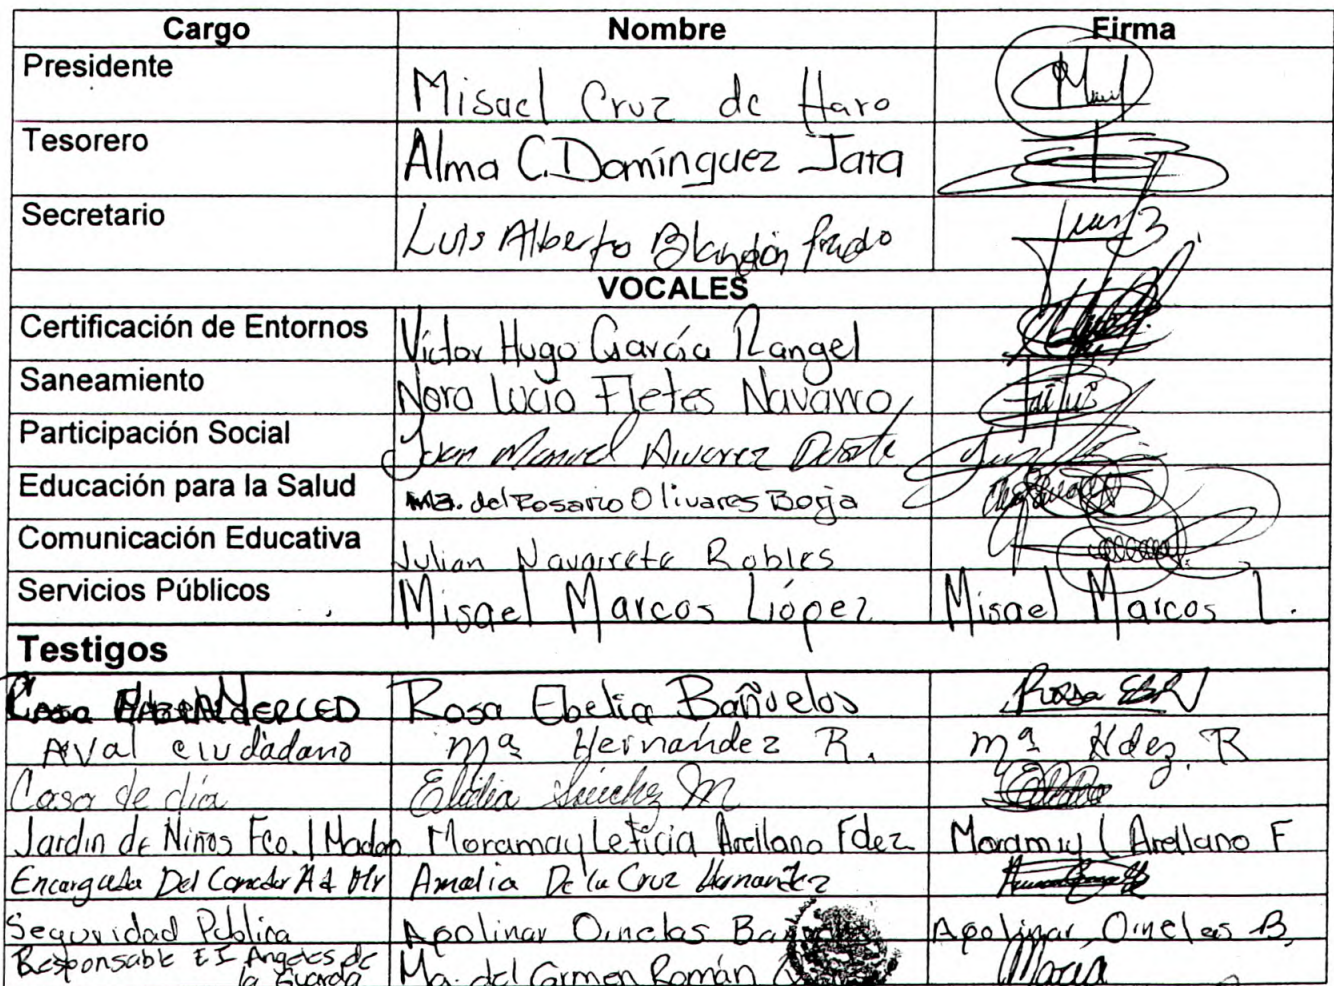 Cargo Nombre Firma
Presidente Misael Cruz de Haro
Tesorero Alma C. Domínguez Jara
Secretario Luis Alberto Blandón Prado
VOCALES
Certificación de Entornos Victor Hugo García Rangel
Saneamiento Nora Lucia Fletes Navarro
Participación Social Juan Manuel Alvarez
Educación para la Salud Ma. del Rosario Olivares Borja
Comunicación Educativa Julian Navarrete Robles
Servicios Públicos Misael Marcos López Misael Marcos L.
Testigos
Casa MERCED Rosa Ebelia Bañuelos Rosa EBR
Aval ciudadano Mª Hernandez R. Mª Hdez. R
Casa de dia Elidia Sánchez M
Jardin de Niños Fco. I Madero Moramay Leticia Arellano Fdez Moramay L Arellano F
Encargada Del Comedor Amalia De la Cruz Hernandez
Seguridad Publica Apolinar Ornelas Apolinar Ornelas B.
Responsable E I Angeles de
la Guarda Ma. del Carmen Román Maria